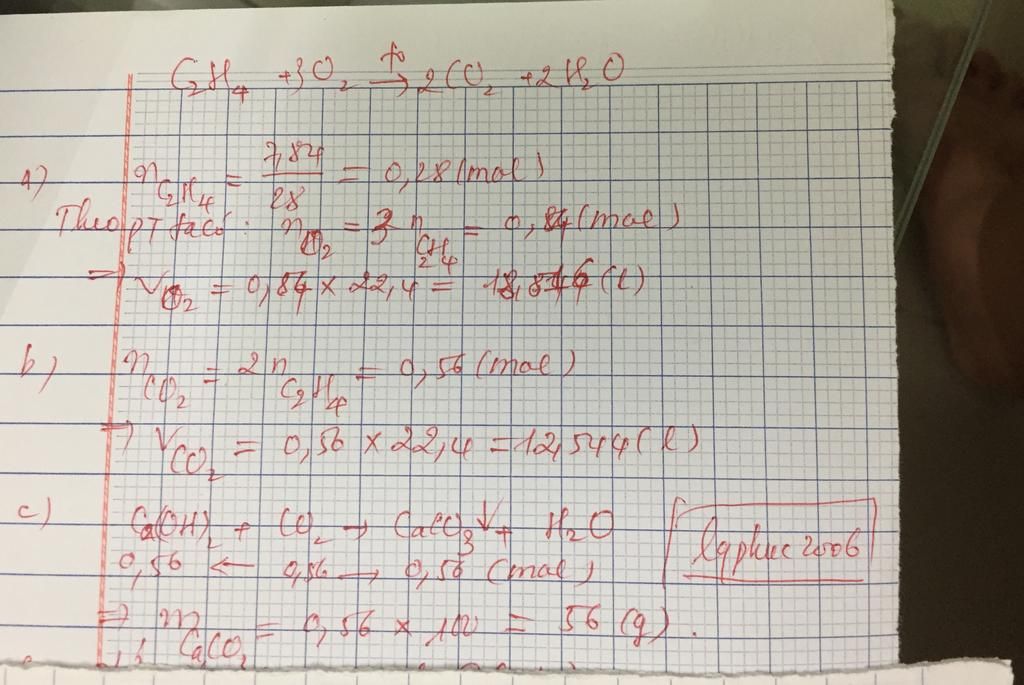 C2H4 + 3O2 →(t°) 2CO2 + 2H2O
a) nC2H4 = 7,84/28 = 0,28 (mol)
Theo PT có: nO2 = 3 nC2H4 = 0,84 (mol)
⇒ VO2 = 0,84 × 22,4 = (l)
b) nCO2 = 2 nC2H4 = 0,56 (mol)
⇒ VCO2 = 0,56 × 22,4 = 12,544 (l)
c) Ca(OH)2 + CO2 → CaCO3↓ + H2O
0,56 ← 0,56 → 0,56 (mol)
lqphuc2006
⇒ mCaCO3 = 0,56 × 100 = 56 (g).